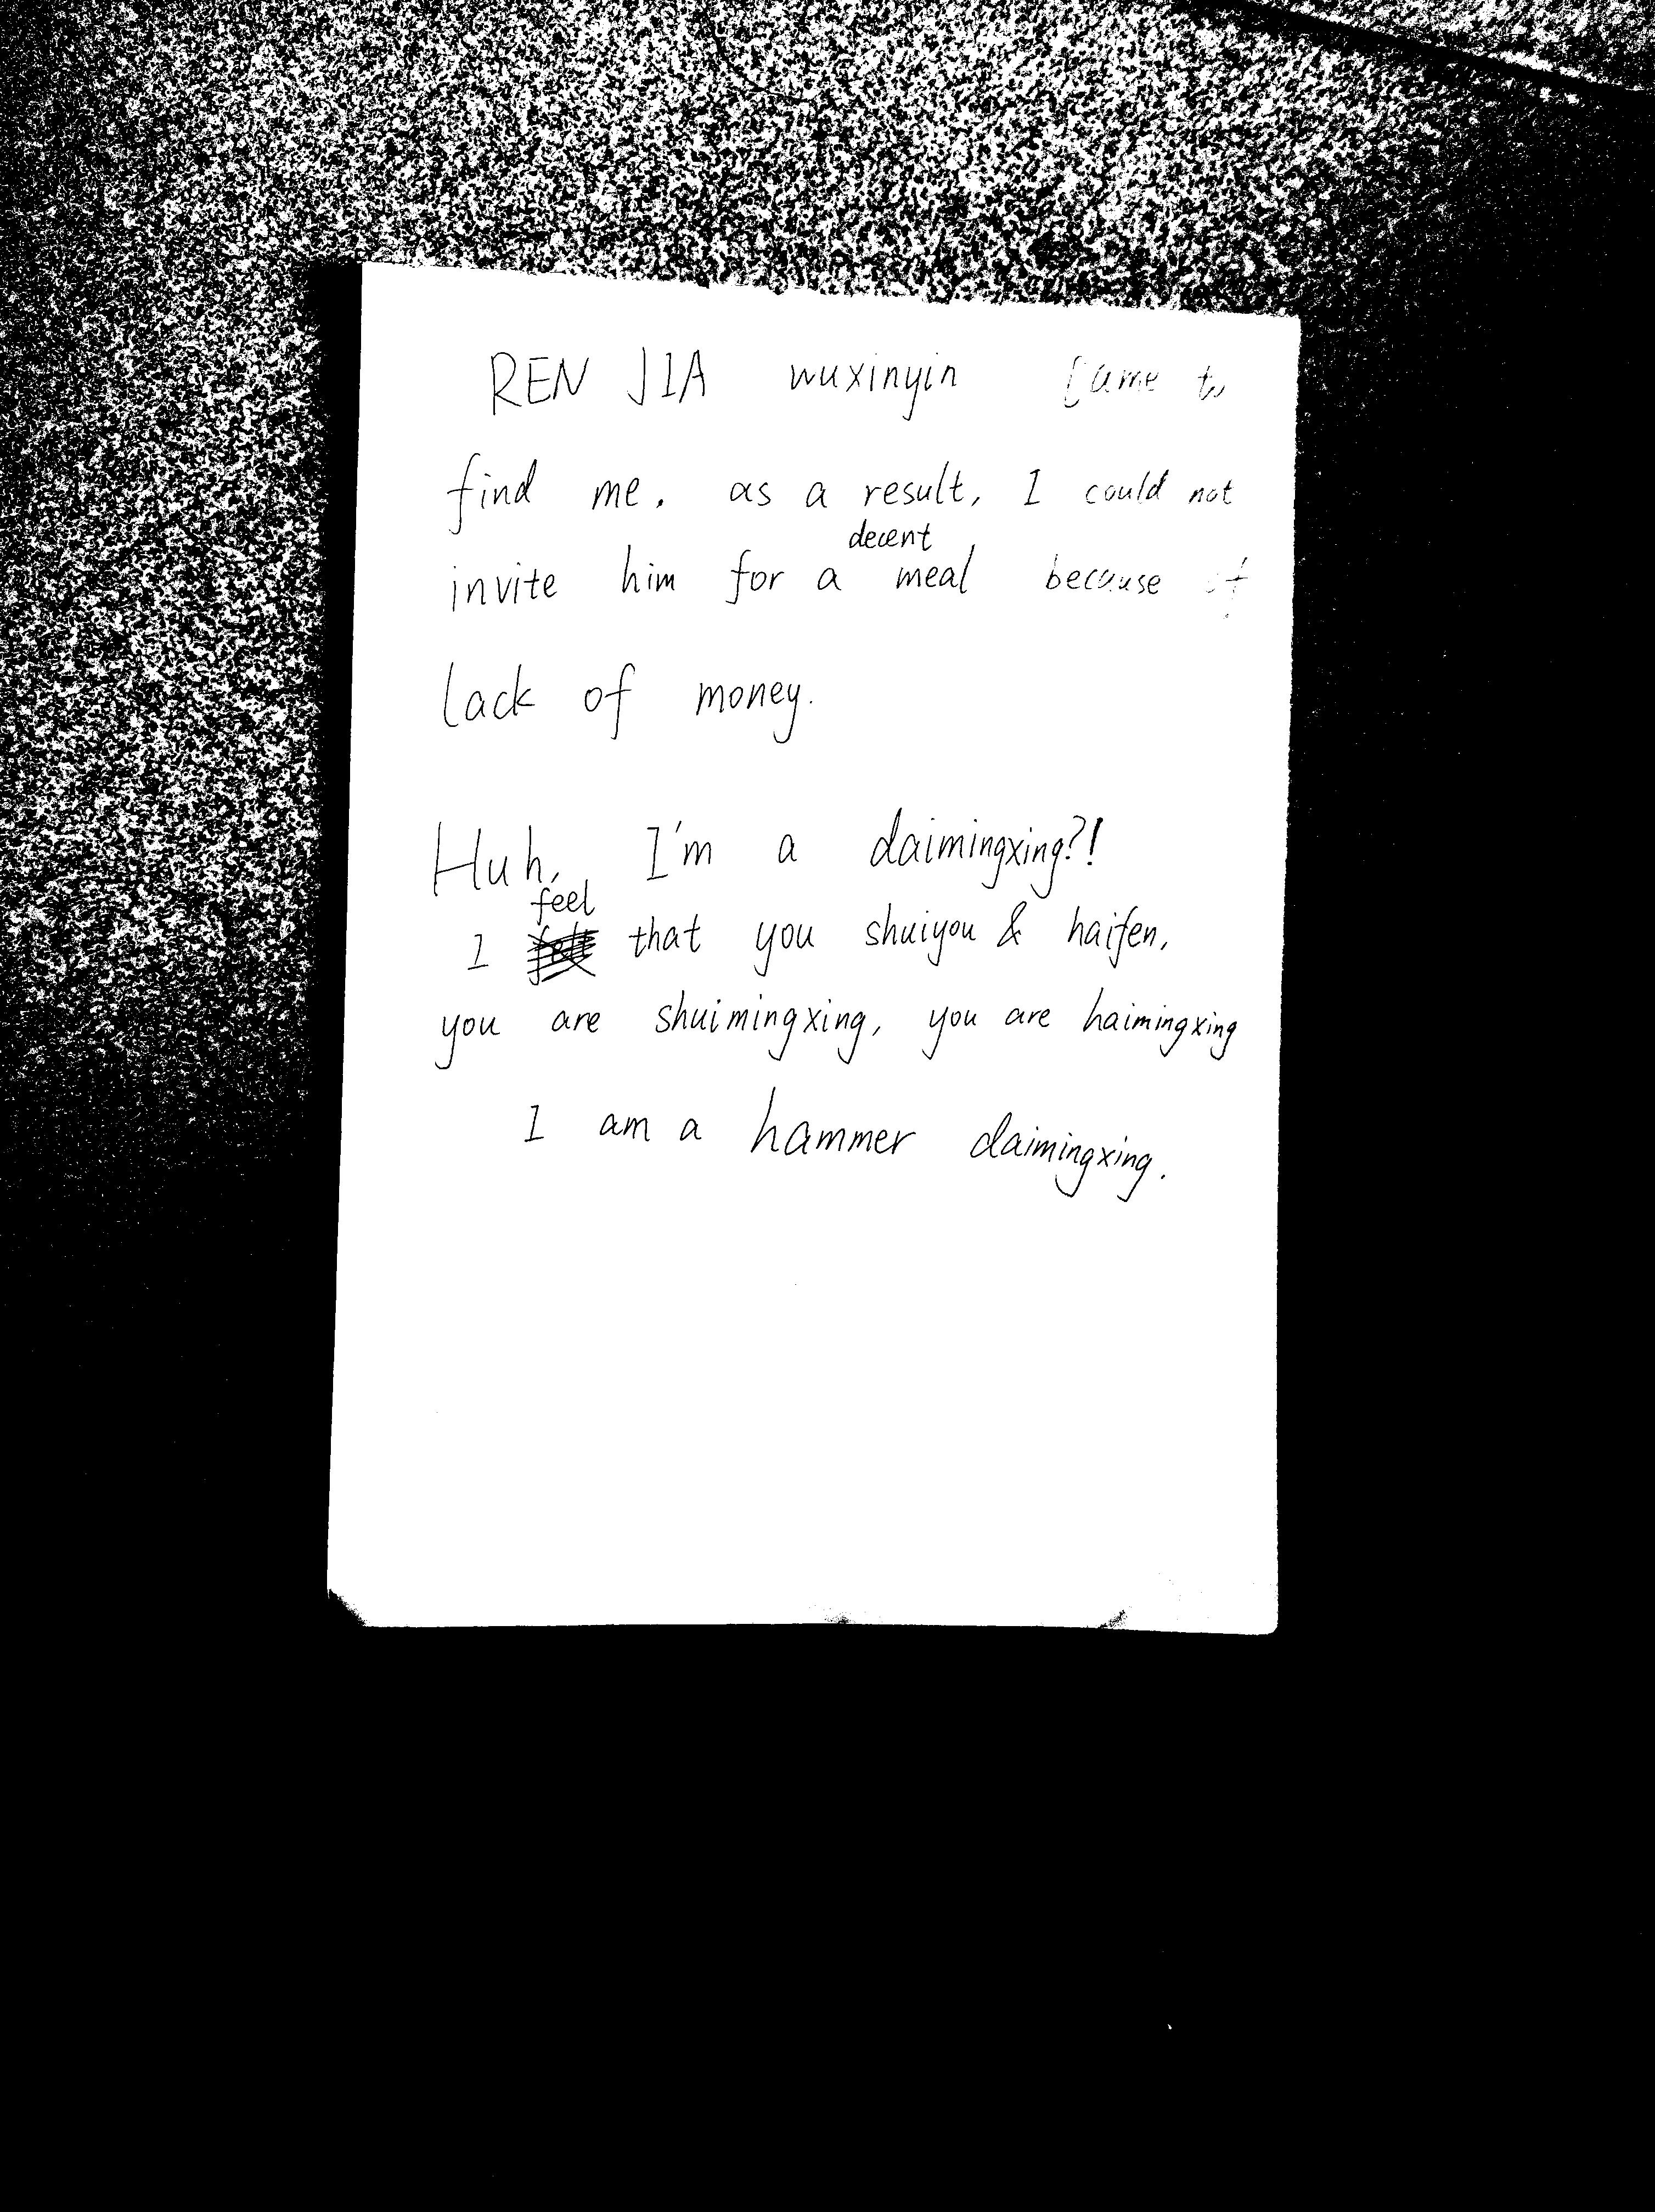 REN JIA wuxinyin came to
find me. as a result, I could not
decent
invite him for a meal because of
lack of money.
Huh, I'm a daimingxing?!
feel
I that you shuiyou & haifen,
you are shuimingxing, you are haimingxing
I am a hammer daimingxing.